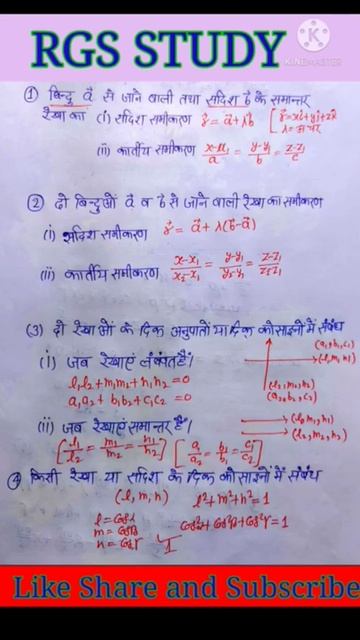 RGS STUDY
KINEMASTER
① बिन्दु a⃗ से जाने वाली तथा सदिश b⃗ के समान्तर
रेखा का (i) सदिश समीकरण r⃗ = a⃗ + λb⃗ [r⃗ = xî + yĵ + zk̂
λ = अचर
(ii) कार्तीय समीकरण x-x₁/a = y-y₁/b = z-z₁/c
② दो बिन्दुओं a⃗ व b⃗ से जाने वाली रेखा का समीकरण
(i) सदिश समीकरण r⃗ = a⃗ + λ(b⃗-a⃗)
(ii) कार्तीय समीकरण x-x₁/x₂-x₁ = y-y₁/y₂-y₁ = z-z₁/z₂-z₁
(3) दो रेखाओं के दिक् अनुपातों या दिक् कोसाइनों में संबंध
(i) जब रेखाएं लंबवत हैं।
(a₁,b₁,c₁)
(l₁,m₁,n₁)
l₁l₂+m₁m₂+n₁n₂=0
a₁a₂+b₁b₂+c₁c₂=0
(l₂,m₂,n₂)
(a₂,b₂,c₂)
(ii) जब रेखाएं समान्तर हैं।
(l₁,m₁,n₁)
(l₂,m₂,n₂)
[l₁/l₂ = m₁/m₂ = n₁/n₂] [a₁/a₂ = b₁/b₂ = c₁/c₂]
④ किसी रेखा या सदिश के दिक् कोसाइनों में संबंध
(l,m,n) l²+m²+n²=1
l = cosα
m = cosβ
n = cosγ
cos²α+cos²β+cos²γ=1
Like Share and Subscribe